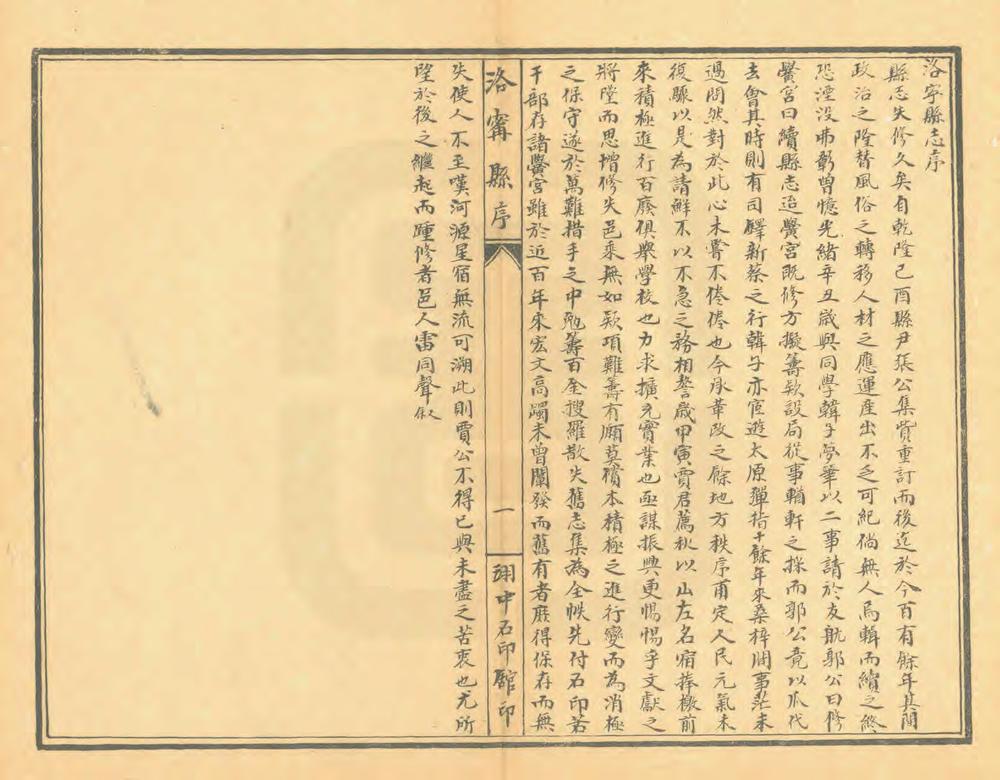 洛寧縣志序
縣志失修久矣自乾隆己酉縣尹張公集貲重訂而後迄於今百有餘年其間
政治之隆替風俗之轉移人材之應運產出不乏可紀倘無人焉輯而續之終
恐湮没弗彰曾憶光緒辛丑歲與同學韓子夢華以二事請於友航郭公曰修
黌宮曰續縣志迨黌宮既修方擬籌欵設局從事輶軒之採而郭公竟以瓜代
去會其時則有司鐸新蔡之行韓子亦宦遊太原彈指十餘年來桑梓間事茫未
過問然對於此心未嘗不倦倦也今承革改之餘地方秩序甫定人民元氣未
復驟以是為請鮮不以不急之務相訾歲甲寅賈君薦秋以山左名宿捧檄前
來積極進行百廢俱舉學校也力求擴充實業也亟謀振興更惕惕乎文獻之
將墜而思增修失邑乘無如欵項難籌有願莫償本積極之進行變而為消極
之保守遂於萬難措手之中勉籌百金搜羅散失舊志集為全帙先付石印若
干部存諸黌宮雖於近百年來宏文高躅未曾闡發而舊有者庶得保存而無
洛甯縣序
一
瑚中石印館印
失使人不至嘆河源星宿無流可溯此則賈公不得已與未盡之苦衷也尤所
望於後之繼起而踵修者邑人雷同聲叙